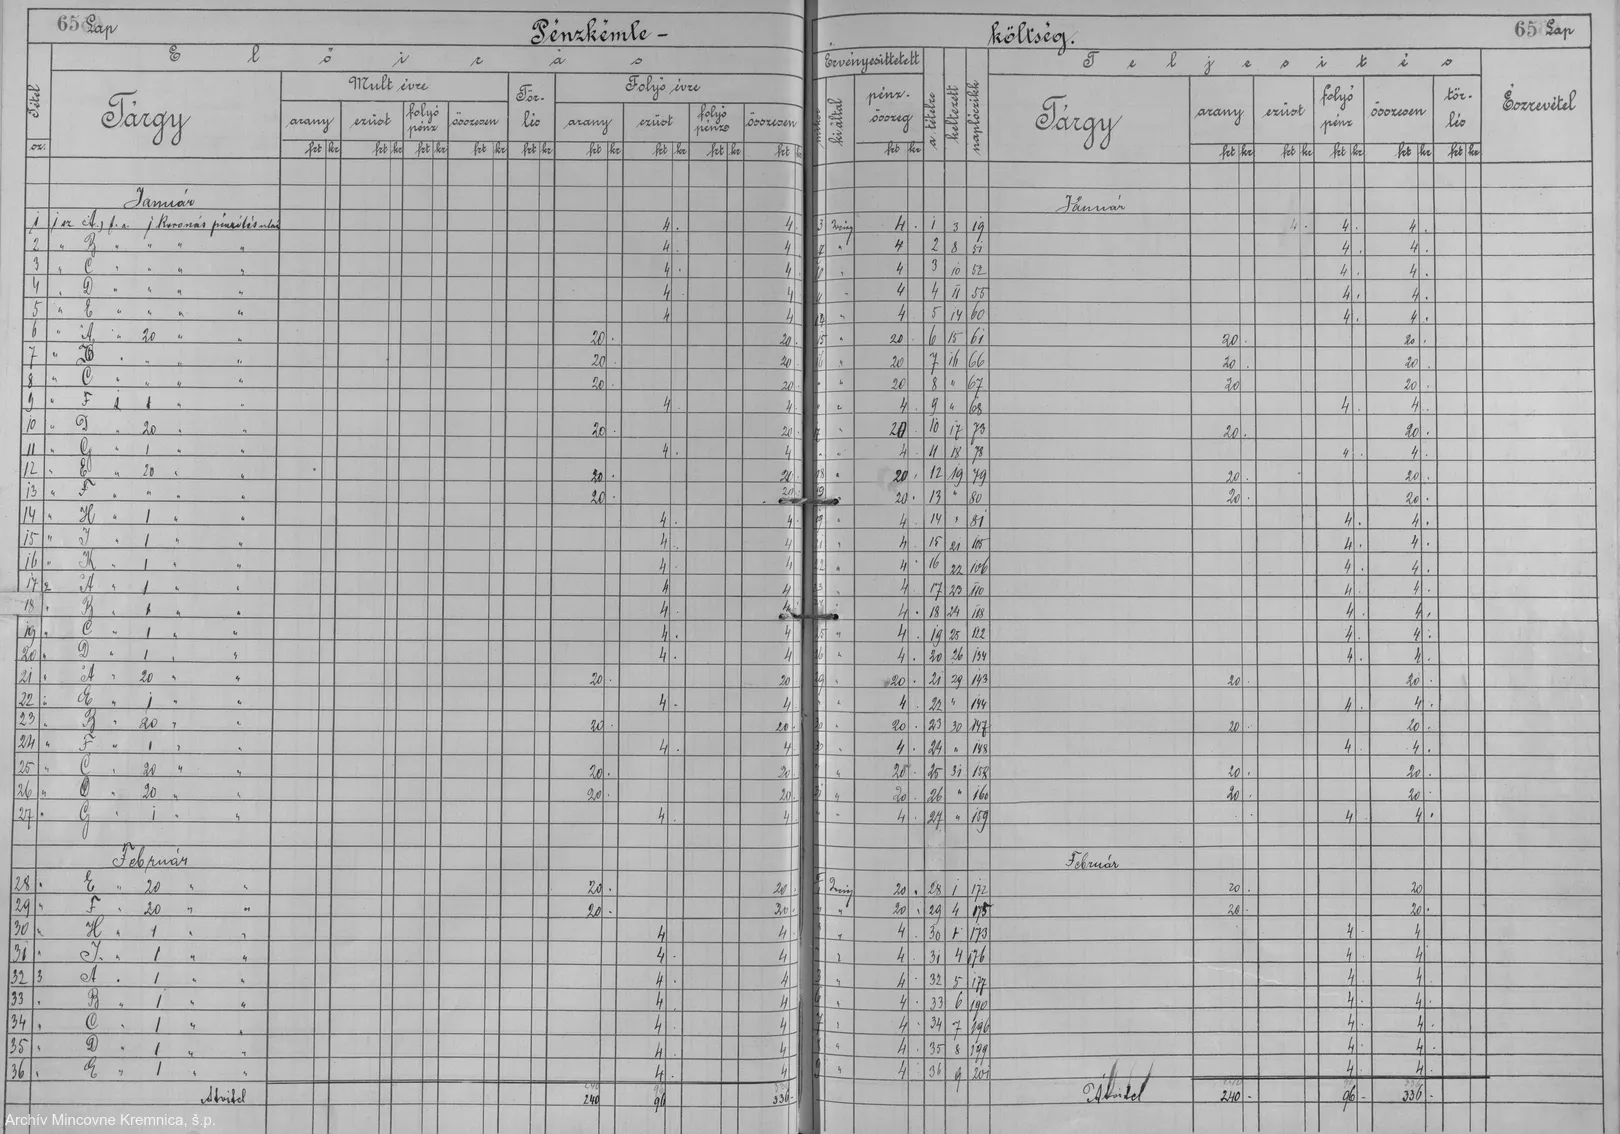 65 Lap Pénzkémle-
Előirás
Tétel Tárgy Mult évre Tör-lés Folyó évre
arany ezüst folyó pénz összesen arany ezüst folyó pénz összesen
sz. frt kr frt kr frt kr frt kr frt kr frt kr frt kr frt kr
Január
1 1 sz A) f. a. 1 Koronás pénz 4 . 4 .
2 " B " " " " 4 . 4 .
3 " C " " " " 4 . 4 .
4 " D " " " " 4 . 4
5 " E " " " " 4 4
6 " A " 20 " " 20 . 20 .
7 " B " " " " 20 . 20
8 " C " " " " 20 . 20 .
9 " F 1 " " 4 . 4 .
10 " D " 20 " " 20 . 20 .
11 " G " 1 " " 4 . 4
12 " E " 20 " " 20 . 20
13 " F " " " " 20 . 20
14 " H " 1 " " 4 . 4 .
15 " I " 1 " " 4 . 4
16 " K " 1 " " 4 . 4
17 2 A " 1 " " 4 4
18 " B " 1 " " 4 . 4
19 " C " 1 " " 4 . 4
20 " D " 1 " " 4 . 4
21 " A " 20 " " 20 . 20
22 " E " 1 " " 4 . 4
23 " B " 20 " " 20 . 20 .
24 " F " 1 " " 4 . 4
25 " C " 20 " " 20 . 20
26 " D " 20 " " 20 . 20
27 " G " 1 " " 4 . 4
Február
28 " E " 20 " " 20 . 20 .
29 " F " 20 " " 20 . 20 .
30 " H " 1 " " 4 4
31 " I " 1 " " 4 . 4
32 3 A " 1 " " 4 . 4
33 " B " 1 " " 4 . 4
34 " C " 1 " " 4 . 4
35 " D " 1 " " 4 . 4
36 " E " 1 " " 4 . 4
Átvitel 240 96 336 -
költség. 65 Lap
Érvényesittetett Teljesités
ki által pénz-összeg a tételre keltezett naplóczikk Tárgy arany ezüst folyó pénz összesen tör-lés Észrevétel
frt kr frt kr frt kr frt kr frt kr frt kr
Január Január
3 4 . 1 3 19 4 . 4 . 4 .
" 4 2 8 51 4 . 4 .
" 4 3 10 52 4 . 4 .
" 4 4 11 55 4 . 4 .
14 " 4 . 5 14 60 4 . 4 .
15 " 20 . 6 15 61 20 . 20 .
16 " 20 7 16 66 20 . 20 .
" " 20 8 " 67 20 20 .
" " 4 . 9 " 68 4 . 4 .
" 20 10 17 73 20 . 20 .
" " 4 . 11 18 78 4 . 4 .
18 " 20 . 12 19 79 20 . 20 .
19 " 20 . 13 " 80 20 . 20 .
19 " 4 . 14 " 81 4 . 4 .
21 " 4 . 15 21 105 4 . 4 .
22 " 4 . 16 22 106 4 . 4 .
23 " 4 . 17 23 110 4 . 4 .
" 4 . 18 24 118 4 . 4 .
25 " 4 . 19 25 122 4 . 4 .
26 " 4 . 20 26 134 4 . 4 .
29 " 20 . 21 29 143 20 . 20 .
" " 4 . 22 " 144 4 . 4 .
30 " 20 . 23 30 147 20 . 20 .
30 " 4 . 24 " 148 4 . 4 .
" 20 . 25 31 158 20 . 20 .
31 " 20 . 26 " 160 20 . 20 .
" " 4 . 27 " 159 4 4 .
Február
20 . 28 1 172 20 . 20
" " 20 . 29 4 175 20 . 20 .
" 4 . 30 1 173 4 . 4
" 4 . 31 4 176 4 . 4
" 4 . 32 5 177 4 . 4
6 " 4 . 33 6 190 4 . 4 .
7 " 4 . 34 7 196 4 . 4 .
8 " 4 . 35 8 199 4 . 4 .
9 " 4 36 9 201 4 . 4 .
Átvitel 240 - 96 - 336 -
Archív Mincovne Kremnica, š.p.